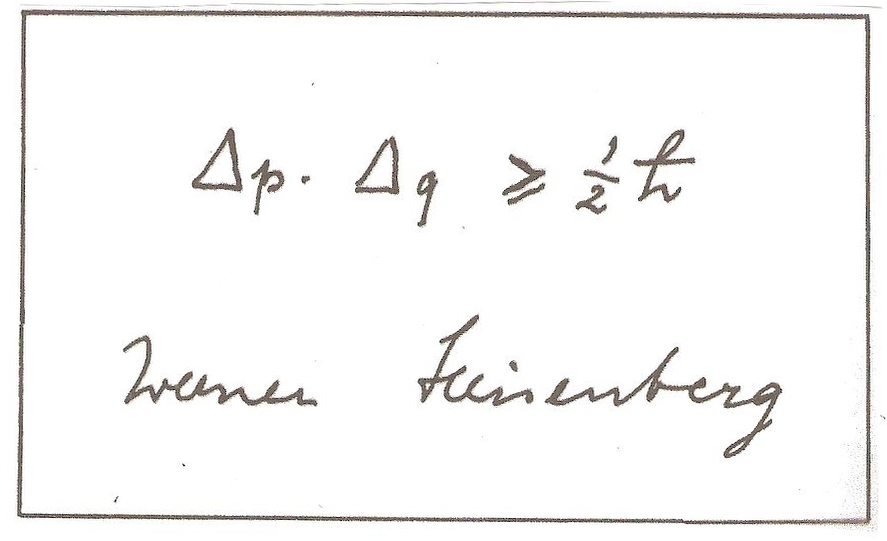 Δp · Δq ⩾ ½ ħ
Werner Heisenberg